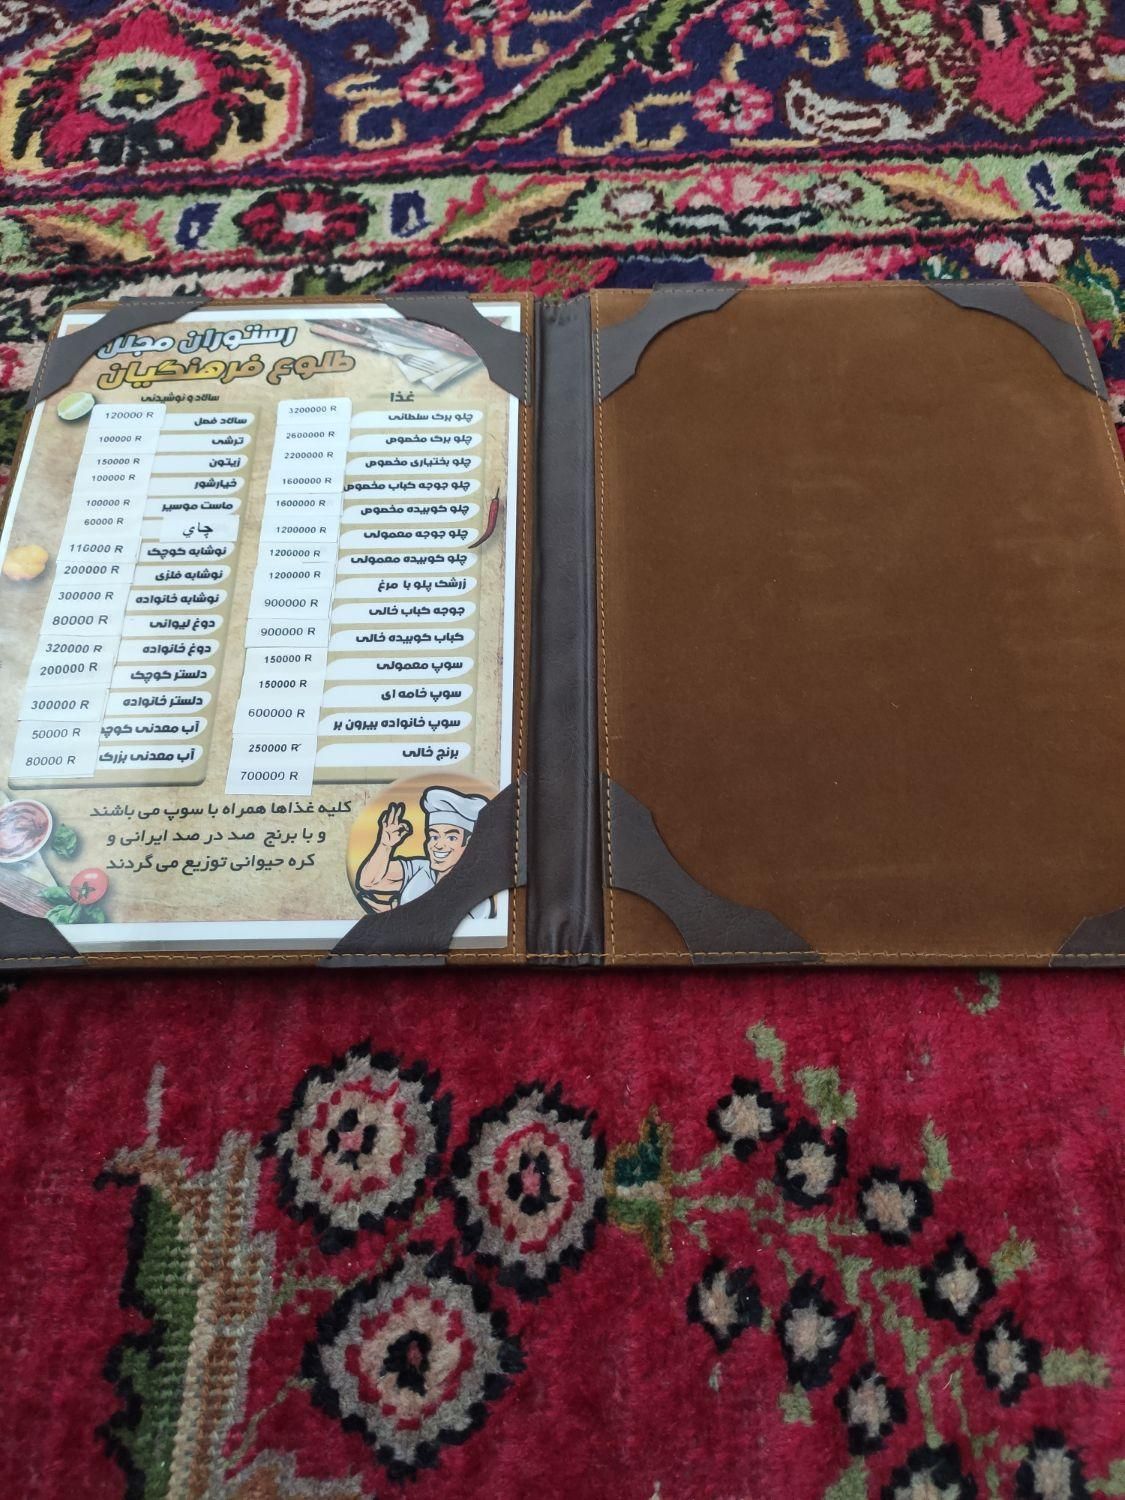 رستوران مجلل
طلوع فرهنگیان
غذا
چلو برگ سلطانی
چلو برگ مخصوص
چلو بختیاری مخصوص
چلو جوجه کباب مخصوص
چلو کوبیده مخصوص
چلو جوجه معمولی
چلو کوبیده معمولی
زرشک پلو با مرغ
جوجه کباب خالی
کباب کوبیده خالی
سوپ معمولی
سوپ خامه ای
سوپ خانواده بیرون بر
برنج خالی
3200000 R
2600000 R
2200000 R
1600000 R
1600000 R
1200000 R
1200000 R
1200000 R
900000 R
900000 R
150000 R
150000 R
600000 R
250000 R
700000 R
سالاد و نوشیدنی
سالاد فصل
ترشی
زیتون
خیارشور
ماست موسیر
چاي
نوشابه کوچک
نوشابه فلزی
نوشابه خانواده
دوغ لیوانی
دوغ خانواده
دلستر کوچک
دلستر خانواده
آب معدنی کوچ
آب معدنی بزرگ
120000 R
100000 R
150000 R
100000 R
100000 R
60000 R
110000 R
200000 R
300000 R
80000 R
320000 R
200000 R
300000 R
50000 R
80000 R
کلیه غذاها همراه با سوپ می باشند
و با برنج صد در صد ایرانی و
کره حیوانی توزیع می گردند